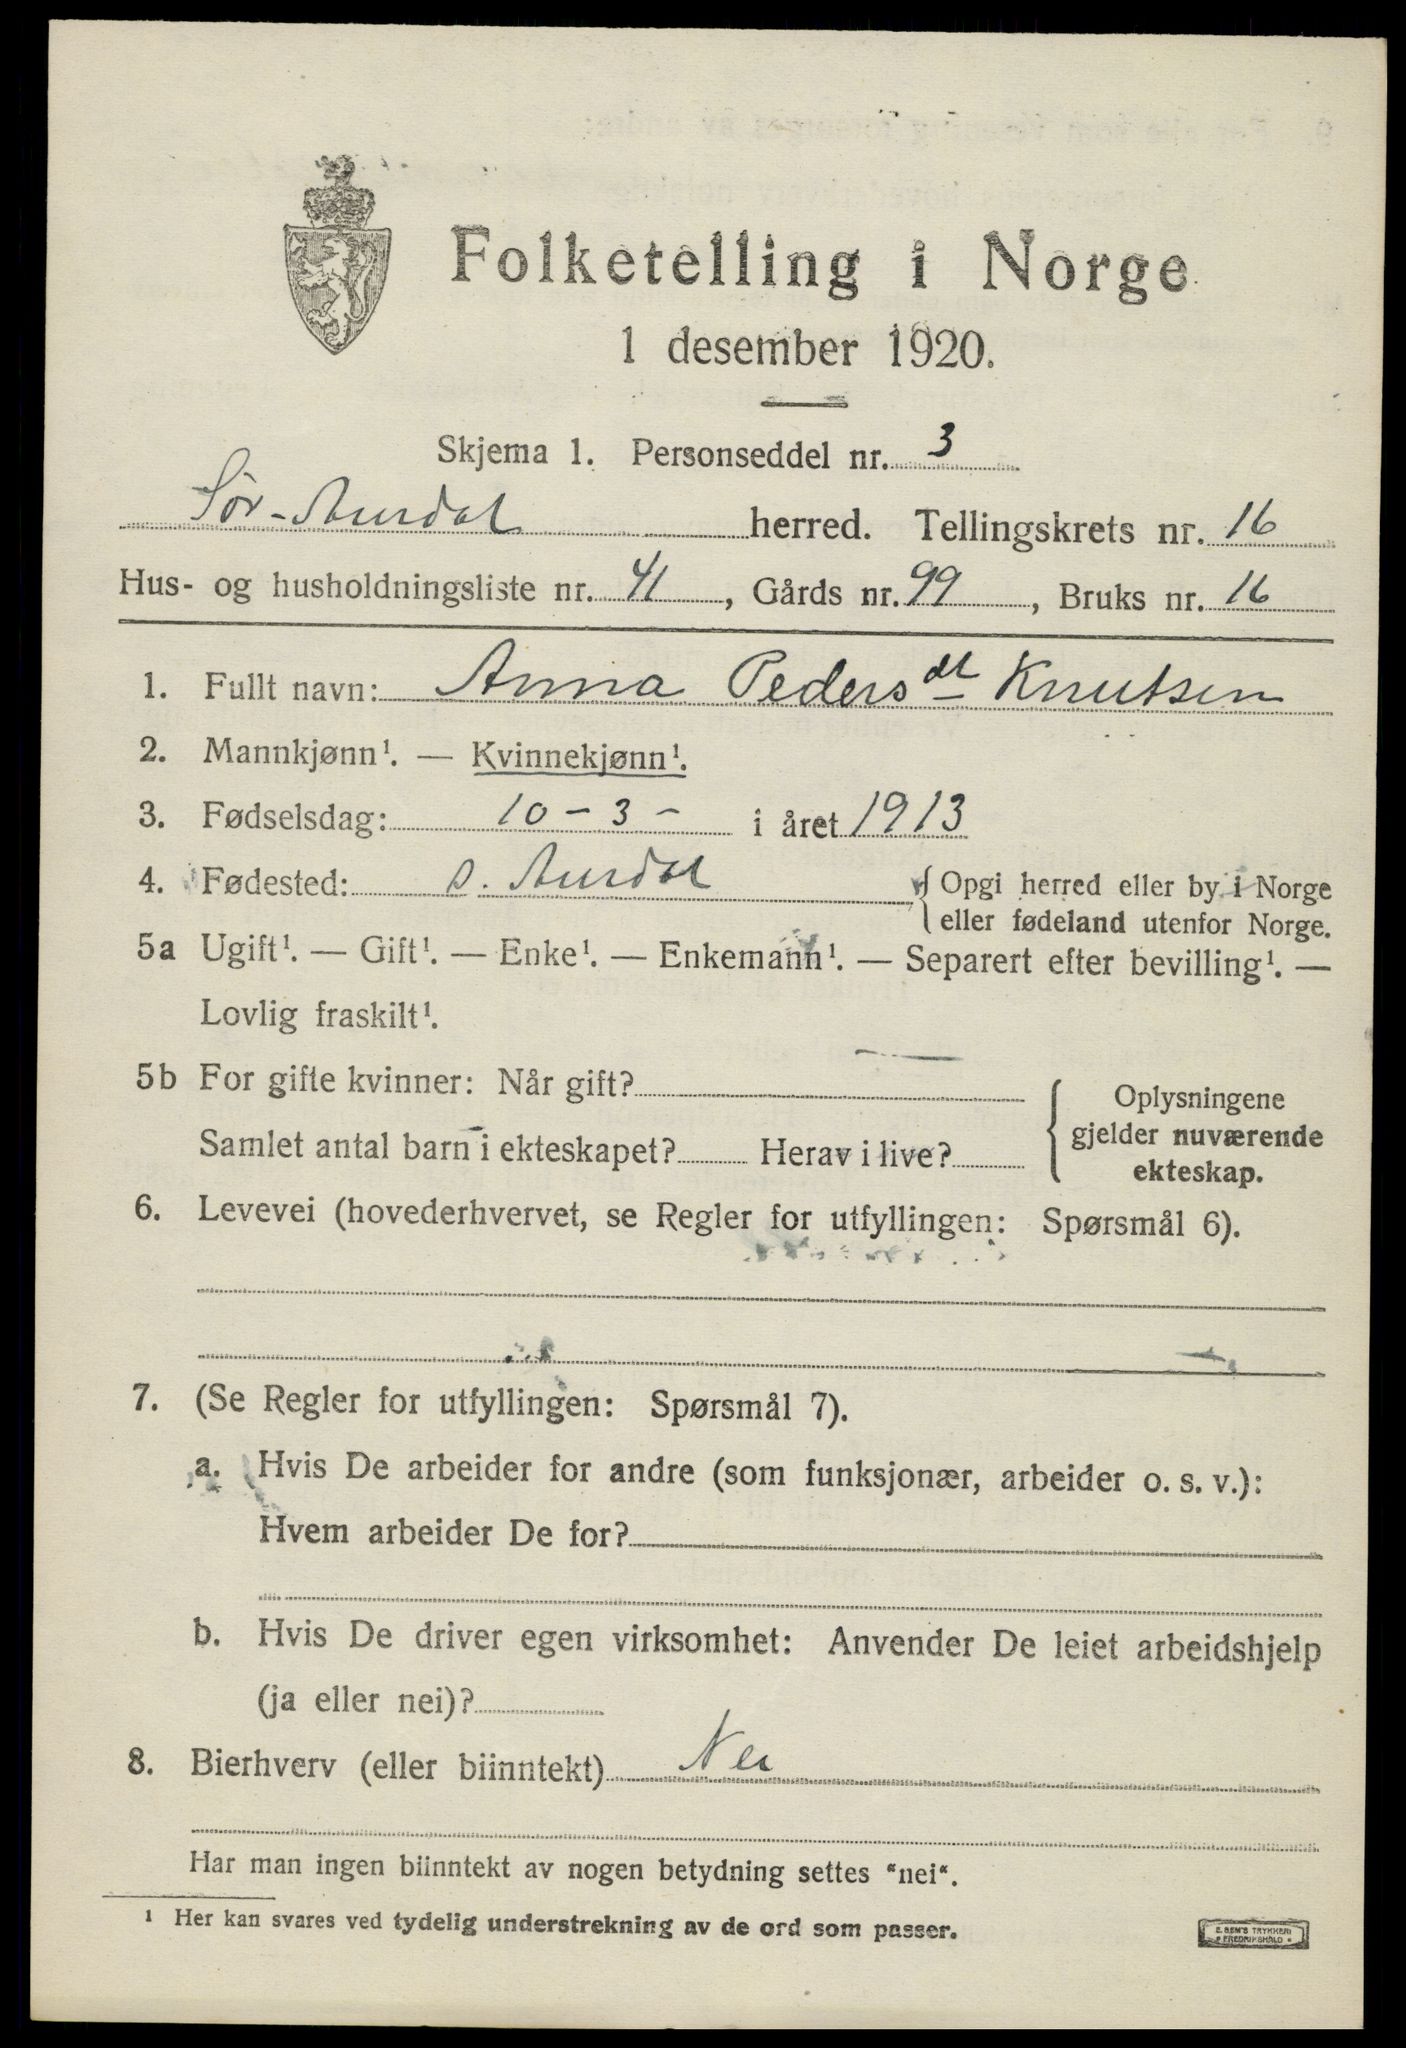 Folketelling i Norge
1 desember 1920.
Skjema 1. Personseddel nr. 3
Sør-Aurdal herred. Tellingskrets nr. 16
Hus- og husholdningsliste nr. 41, Gårds nr. 99, Bruks nr. 16
1. Fullt navn: Anna Pedersdt Knutsen
2. Mannkjønn¹. — Kvinnekjønn¹.
3. Fødselsdag: 10-3- i året 1913
4. Fødested: S. Aurdal { Opgi herred eller by i Norge
eller fødeland utenfor Norge.
5a Ugift¹. — Gift¹. — Enke¹. — Enkemann¹. — Separert efter bevilling¹. —
Lovlig fraskilt¹.
5b For gifte kvinner: Når gift? —
Samlet antal barn i ekteskapet? Herav i live?
{ Oplysningene
gjelder nuværende
ekteskap.
6. Levevei (hovederhvervet, se Regler for utfyllingen: Spørsmål 6).
7. (Se Regler for utfyllingen: Spørsmål 7).
a. Hvis De arbeider for andre (som funksjonær, arbeider o. s. v.):
Hvem arbeider De for?
b. Hvis De driver egen virksomhet: Anvender De leiet arbeidshjelp
(ja eller nei)?
8. Bierhverv (eller biinntekt) Nei
Har man ingen biinntekt av nogen betydning settes "nei".
¹ Her kan svares ved tydelig understrekning av de ord som passer.
E. SEM'S TRYKKERI
FREDRIKSHALD